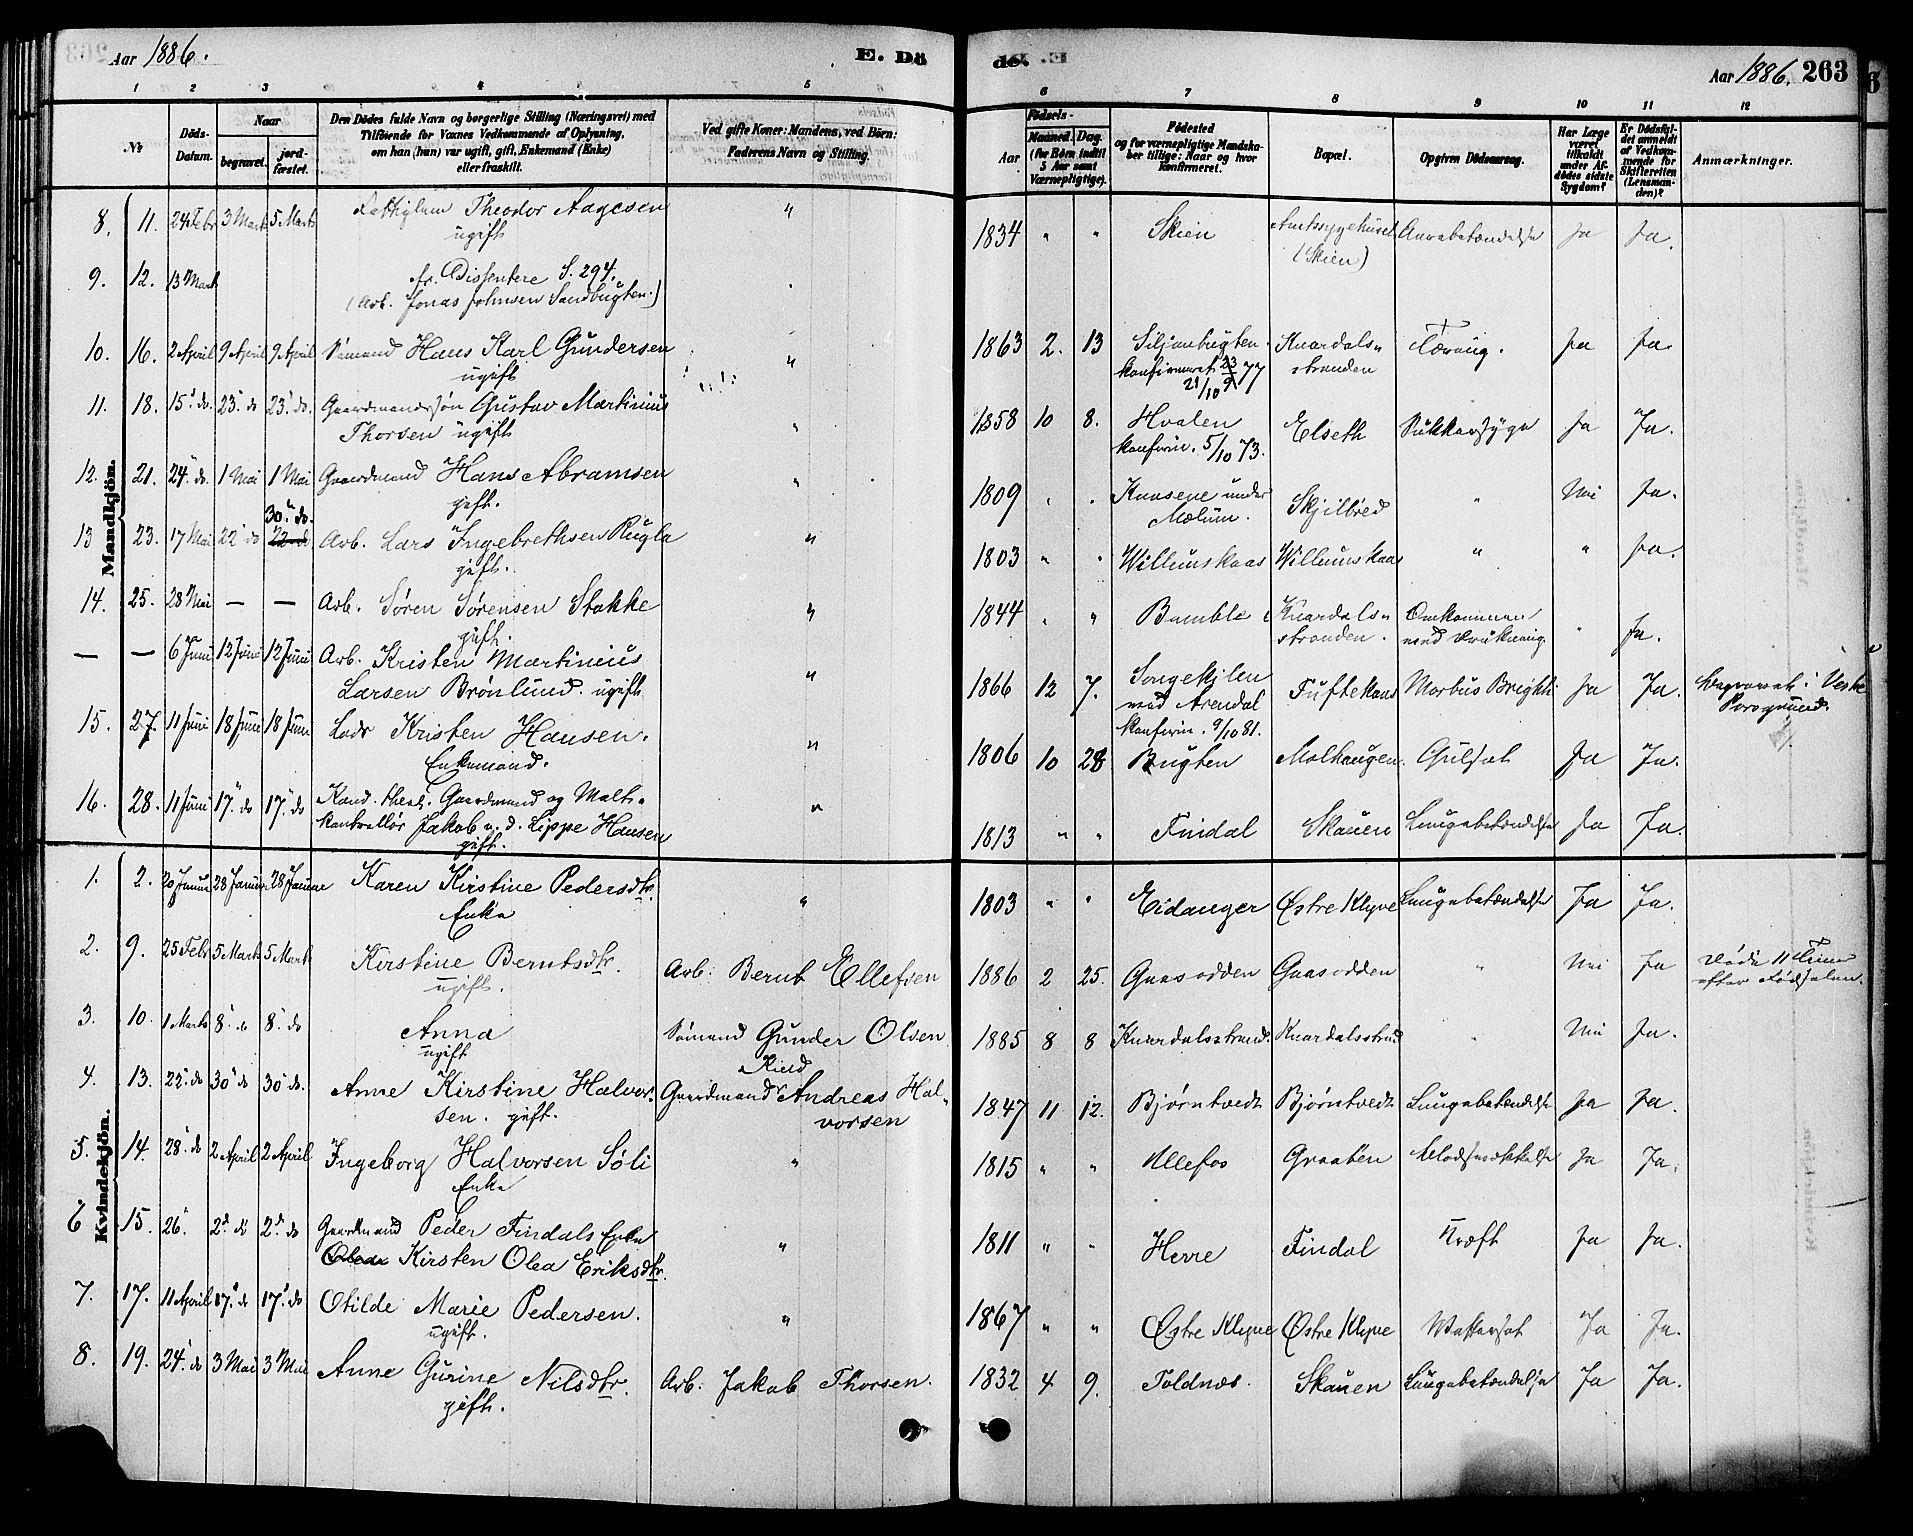 Aar 1886.
E. Dö
de.
Aar 1886. 263
1 2 3 4 5
6 7 8 9 10 11 12
No
Döds-Datum.
Naar
begravet.
jord-fæstet.
Den Dødes fulde Navn og borgerlige Stilling (Næringsvei) med
Tilföiende for Voxnes Vedkommende af Oplysning,
om han (hun) var ugift, gift, Enkemand (Enke)
eller fraskilt.
Ved gifte Koner: Mandens, ved Börn:
Faderens Navn og Stilling.
Födsels-
Aar
Maaned. Dag.
(for Börn indtil
5 Aar samt
Værnepligtige).
Födested
og for værnepligtige Mandska-
ber tillige: Naar og hvor
Konfirmeret.
Bopæl.
Opgiven Dödsaarsag.
Har Læge
været
tilkaldt
under Af-
dödes sidste
Sygdom?
Er Dödsfal-
det anmeldt
af Vedkom-
mende for
Skifteretten
(Lensman-
den)?
Anmærkninger.
Mandkjön.
8. 11. 24 Febr 3 Marts 5 Marts Fattiglem Theodor Aagesen " 1834 " " Skien Amtssygehuset Aarebetændelse Ja Ja.
ugift (Skien)
9. 12. 13 Mart fr. Dissentere S. 294.
(Arb. Jonas Johnsen Sandbugten.)
10. 16. 2 April 9 April 9 April Sømand Hans Karl Gundersen " 1863 2. 13 Siljanbugten. Knardals- Tæring. Ja Ja.
ugift konfirmeret 23/9 77 stranden
21/10
11. 18. 15 do. 23 do 23 do. Gaardmandssøn Gustav Martinius " 1858 10 8. Hvalen Elseth Sukkersyge Ja Ja.
Thorsen ugift konfirm. 5/10 73.
12. 21. 24 do. 1 Mai 1 Mai Gaardmand Hans Abramsen " 1809 " " Knasene under Skjilbred " Nei Ja.
gift. Mælum.
30 do.
13 23. 17 Mai 22 do 22 do Arb. Lars Ingebrethsen Rugla " 1803 " " Willumskaas Willumskaas " " Ja.
gift.
14. 25. 28 Mai — — Arb. Søren Sørensen Stokke " 1844 " " Bamble Knardals- Omkommen " Ja.
gift. stranden. ved Drukning.
— — 6 Juni 12 Juni 12 Juni Arb. Kristen Martinius " 1866 12 7. Songekilen Tuftekaas Morbus Brighti Ja Ja. begravet i Vestre
Larsen Brønlund. ugift ved Arendal Porsgrund.
konfirm. 9/10 81.
15. 27. 11 Juni 18 Juni 18 Juni Lods Kristen Hansen. " 1806 10 28 Bugten Molhaugen. Gulsot Ja Ja.
Enkemand.
16. 28. 11 Juni 17 do 17 do Kand. theol. Gaardmand og Malt- " 1813 " " Findal Skauen Lungebetændelse Ja Ja.
kontrollør Jakob v. d. Lippe Hansen
gift.
Kvindekjön.
1. 2. 20 Januar 28 Januar 28 Januar Karen Kirstine Pedersdtr. " 1803 " " Eidanger Østre Klyve Lungebetændelse Ja Ja.
Enke
2. 9. 25 Febr 5 Marts 5 Marts Kirstine Berntsdtr. Arb: Bernt Ellefsen 1886 2 25. Gaasodden Gaasodden " Nei Ja Døde 11 Timer
ugift. efter Fødselen.
3. 10. 1 Marts 8 do 8 do Anna Sømand Gunder Olsen 1885 8 8 Knardalsstrand. Knardalsstrand " Nei Ja.
ugift Rud
4. 13. 22 do 30 do 30 do. Anne Kirstine Halvor- Gaardmand Andreas Hal- 1847 11 12. Bjørntvedt Bjørntvedt Lungebetændelse Ja Ja.
sen. gift. vorsen
5. 14. 28 do 2 April 2 April Ingeborg Halvorsen Søli " 1815 " " Ullefos Graaten Ja Ja.
Enke
6 15. 26 2 do 2 do Gaardmand Peder Findals Enke " 1811 " " Herre Findal Kræft Ja Ja.
Kirsten Olea Eriksdtr.
7. 17. 11 April 17 do 17 do Otilde Marie Pedersen. " 1867 " " Østre Klyve Østre Klyve Vattersot Ja Ja.
ugift.
8. 19. 24 do 3 Mai 3 Mai Anne Gurine Nilsdtr. Arb. Jakob Thorsen. 1832 4 9. Toldnæs. Skauen Lungebetændelse Ja Ja.
gift.